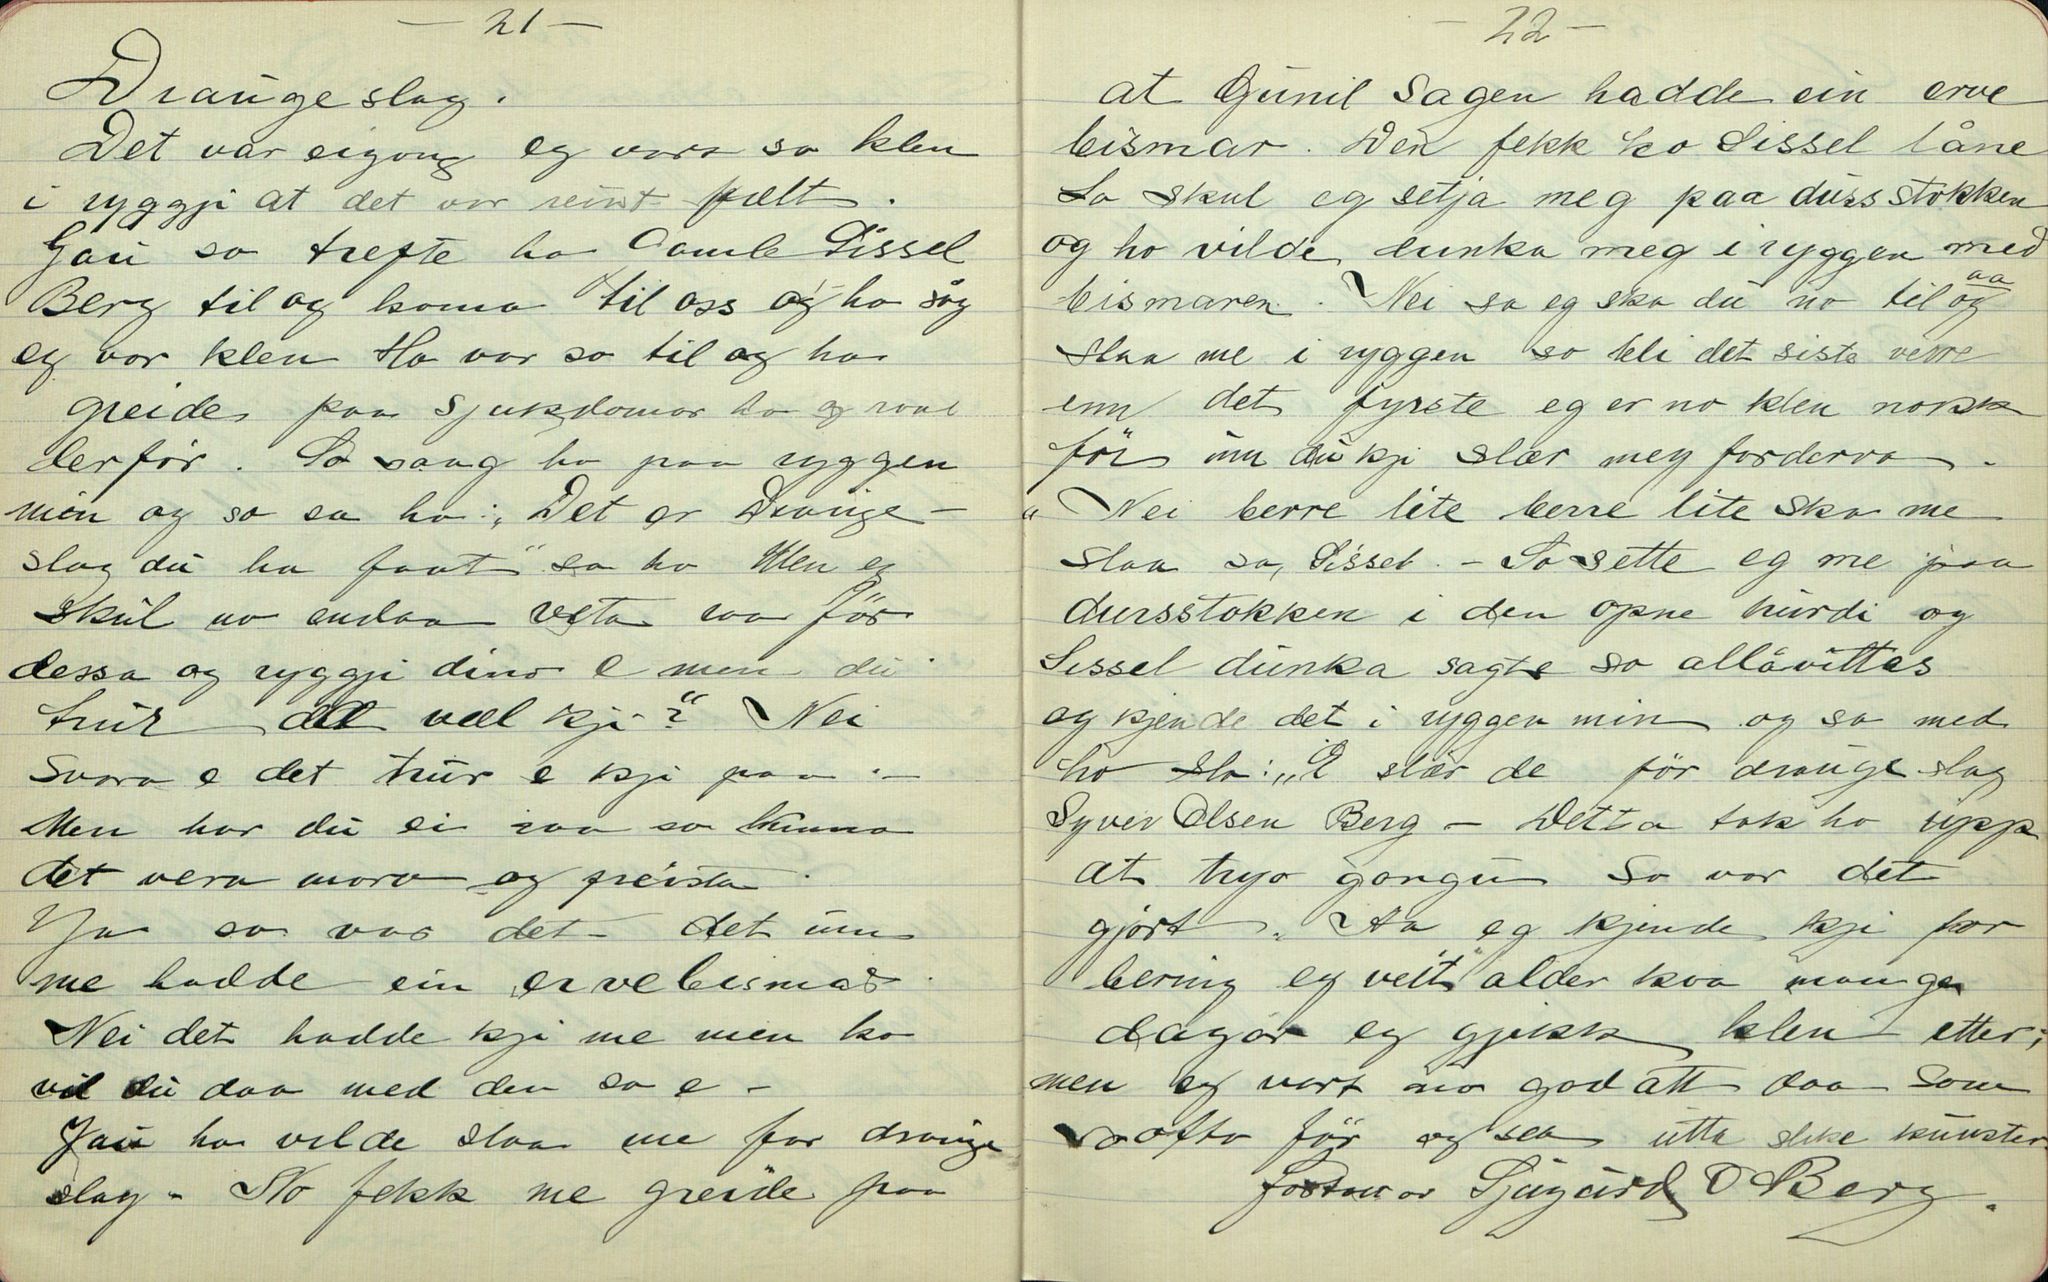 - 21 -
Draugeslag.
Det var eigong eg vart so klen
i ryggji at det var reint fælt.
Jau so trefte ho Gamle Sissel
Berg til og koma til oss og ho såg
eg var klen Ho var so til og ha
greide paa sjukdomar ho og raae
derfør. So saag ho paa ryggen
min og so sa ho: „Det er Drauge-
slag du ha faat" sa ho Men eg
skul no endaa veta raa før
dessa og ryggji dino e men du
trur det væl kji?" Nei
svara e det trur e kji paa.-
Men har du ei raa so kunna
det vera moro og freista.
Ja so var det det um
me hadde ein ervebismar.
Nei det hadde kji me men ko
vil du daa med den sa e -
Jau ho vilde slaa me for drauge
slag - No fekk me greide paa
- 22 -
at Gunil Sagen hadde ein erve
bismar. Den fekk ho Sissel låne
So skul eg setja meg paa dursstokken
og ho vilde dunka meg i ryggen med
bismaren. Nei sa eg ska du no til og aa
slaa me i ryggen so bli det siste verre
enn det fyrste eg er no klen nokk
før um du kji slær meg forderva.
„Nei berre lite berre lite ska me
slaa sa, Sissel. - So sette eg me paa
dursstokken i den opne hurdi og
Sissel dunka sagte so allåvittas
eg kjende det i ryggen min og so med
ho slo: „E slær de før drauge slag
Syver Olsen Berg - Detta tok ho upp
at tryo gongu So var det
gjort. Aa eg kjende kji for
bering eg veit alder kva mange
dagar eg gjekk klen etter;
men eg vart no god att daa som
so ofto før og sea utta slike kunster.
Fortalt av Sjugurd O Berg.